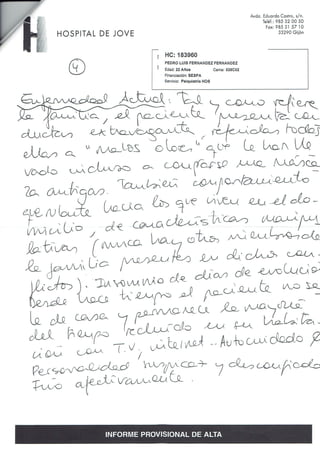 HOSPITAL DE JOVE
Avda. Eduardo Castro, s/n.
Telef.: 985 32 00 50
Fax: 985 31 57 10
33290 Gijón
4
HC: 183960
PEDRO LUIS FERNANDEZ FERNANDEZ
Edad: 32 Años
Financiación: SESPA
Servicio: Psiquiatría HDE
Enfermedad Actual: Tal y como refiere
la familia, el paciente presenta con
ductas extravagantes, referidas todas
ellas a "malos olores" que le han lle
vado incluso a comprarse una másca
ra antigas. También comportamiento
hacia los que viven en el do-
micilio, de características manipu
lativas (nunca hay otros miembros de
la familia presentes en dichos con
flictos). Insomnio de días de evolución
Desde hace tiempo el paciente no sa
le de casa y permanece la mayor
del tiempo recluido en su habita
ción con T.V, internet.. Autocuidado
Personalidad y desconfiado
Frío afectivamente.
INFORME PROVISIONAL DE ALTA